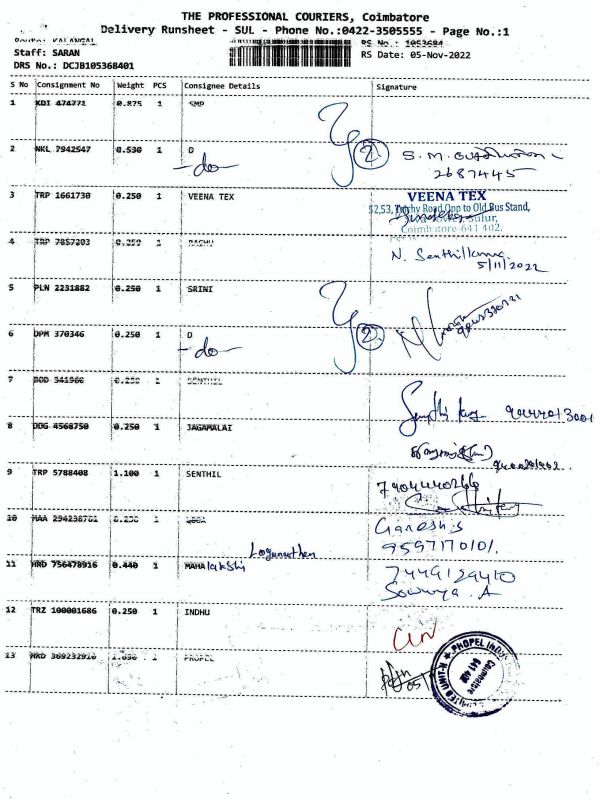 THE PROFESSIONAL COURIERS, Coimbatore
Delivery Runsheet - SUL - Phone No.:0422-3505555 - Page No.:1
Staff: SARAN
RS Date: 05-Nov-2022
DRS No.: DCJB105368401
S No Consignment No Weight PCS Consignee Details Signature
1 KDI 474771 0.875 1 SMP
2 NKL 7942547 0.530 1 D
-do-
2
S.M.
2687445
3 TRP 1661730 0.250 1 VEENA TEX
VEENA TEX
Road, Opp to Old Bus Stand,
Sulur,
Coimbatore-641 402.
4 TRP 7857203 0.250 1 RAGHU
N. Senthilkumar
5/11/2022
5 PLN 2231882 0.250 1 SRINI
6 DPM 370346 0.250 1 D
-do-
2
7 DOD 341960 0.250 1 SENTHIL
8 DDG 4568750 0.250 1 JAGAMALAI
9 TRP 5788408 1.100 1 SENTHIL
7904440266
10 MAA 294238701 0.250 1
Ganesh s
9597170101.
Loganathan
11 HRD 756478916 0.440 1 MAHA lakshi
7449129410
Sowmya. A
12 TRZ 100001686 0.250 1 INDHU
13 HRD 369232910 1.650 1 PROPEL
PROPEL
Coimbatore